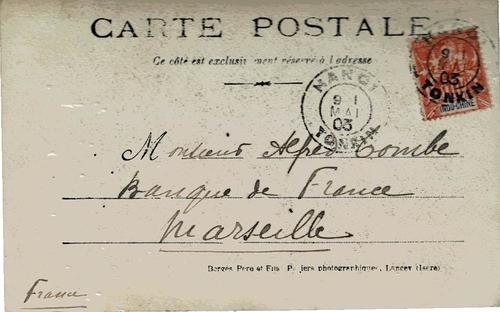 CARTE POSTALE
Ce côté est exclusivement réservé à l'adresse
HANOI
9 1
MAI
03
TONKIN
9
03
TONKIN
INDO-CHINE
Monsieur Alfred Combe
Banque de France
Marseille
Bergès Père et Fils Papiers photographiques, Lancey (Isère)
France